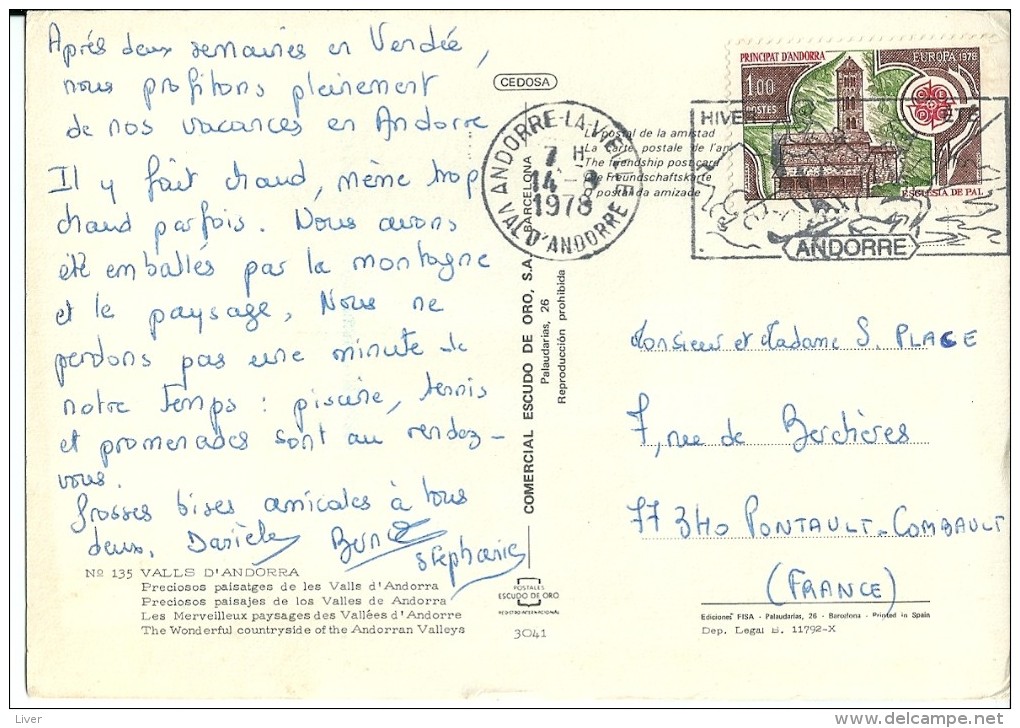 Après deux semaines en Vendée,
nous profitons pleinement
de nos vacances en Andorre
Il y fait chaud, même trop
chaud parfois. Nous avons
été emballés par la montagne
et le paysage, Nous ne
perdons pas une minute de
notre temps : piscine, tennis
et promenades sont au rendez-
vous.
Grosses bises amicales à tous
deux. Danièle Stéphanie
Nº 135 VALLS D'ANDORRA
Preciosos paisatges de les Valls d'Andorra
Preciosos paisajes de los Valles de Andorra
Les Merveilleux paysages des Vallées d'Andorre
The Wonderful countryside of the Andorran Valleys
CEDOSA
COMERCIAL ESCUDO DE ORO, S.A.
BARCELONA
Palaudarias, 26
Reproducción prohibida
POSTALES
ESCUDO DE ORO
REGISTRO INTERNACIONAL
3041
ANDORRE-LA-VIEILLE
7 H
14 - 8
1978
VAL D'ANDORRE
La postal de la amistad
La carte postale de l'am
The friendship post card
Die Freundschaftskarte
O postal da amizade
PRINCIPAT D'ANDORRA
EUROPA 1978
1,00
POSTES
ESGLESIA DE PAL
HIVER
ETE
ANDORRE
Monsieur et Madame S. PLACE
7, rue de Berchères
77 340 PONTAULT-COMBAULT
(FRANCE)
Ediciones FISA - Palaudarias, 26 - Barcelona - Printed in Spain
Dep. Legal B. 11792-X
Liver
www.delcampe.net